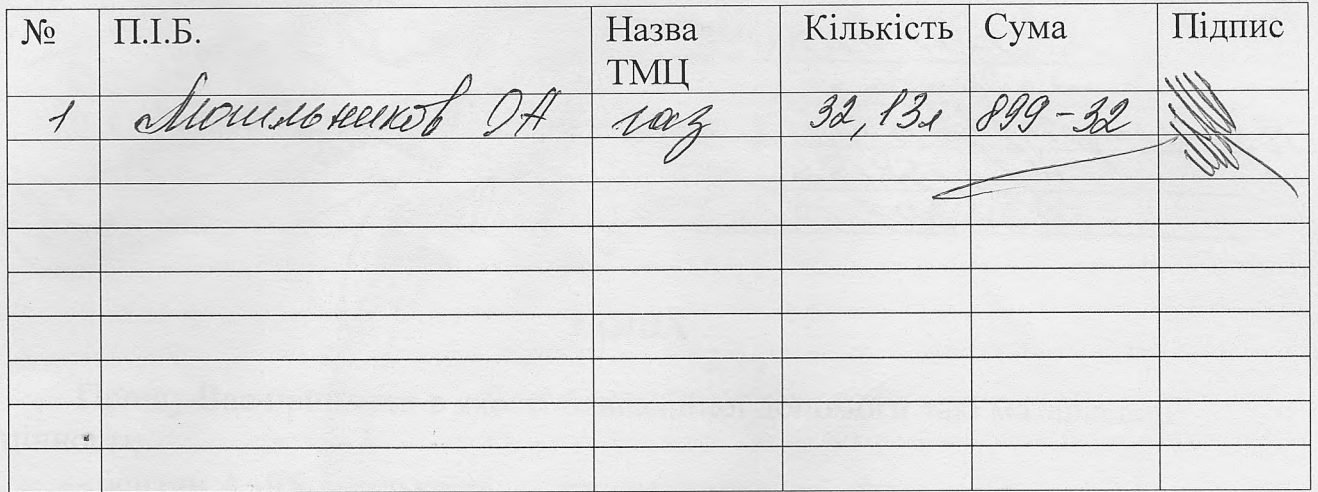 № П.І.Б. Назва ТМЦ Кількість Сума Підпис
1 Мошльников ОА газ 32,13л 899-32